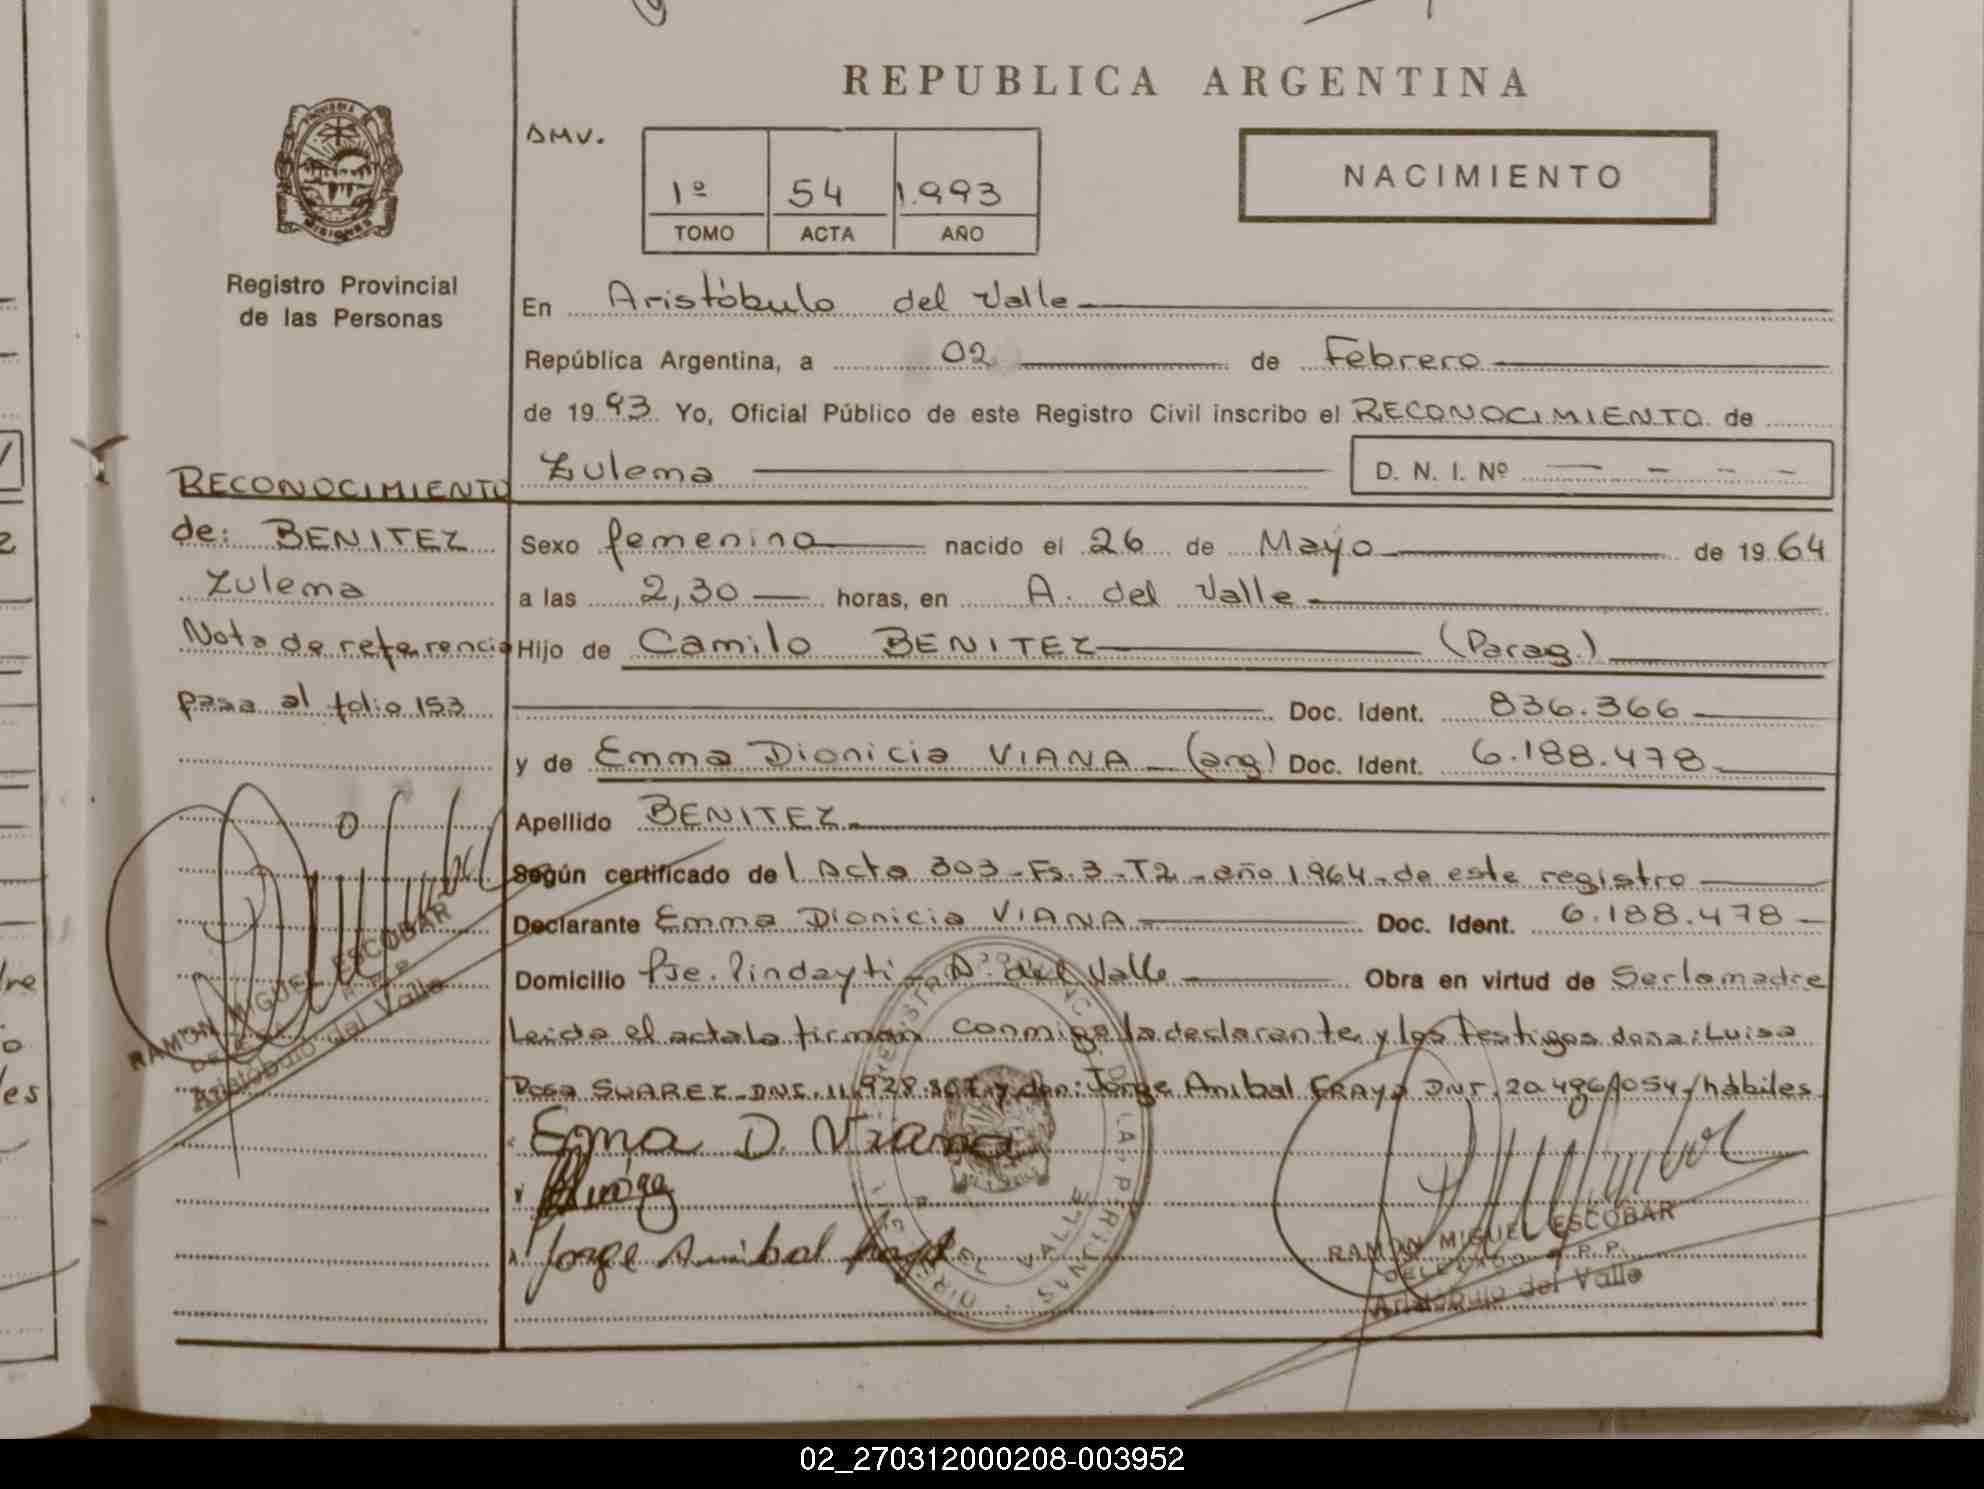 REPUBLICA ARGENTINA
DMV.
1º 54 1.993
TOMO ACTA AÑO
NACIMIENTO
PROVINCIA DE MISIONES
Registro Provincial
de las Personas
En Aristóbulo del Valle
República Argentina, a 02 de Febrero
de 1993 Yo, Oficial Público de este Registro Civil inscribo el RECONOCIMIENTO de
Zulema D. N. I. Nº — - - -
RECONOCIMIENTO
de: BENITEZ
Zulema
Nota de referencia
pasa al folio 153
RAMON MIGUEL ESCOBAR
Aristóbulo del Valle
Sexo femenino nacido el 26 de Mayo de 1964
a las 2,30 horas, en A. del Valle
Hijo de Camilo BENITEZ (Parag.)
Doc. Ident. 836.366
y de Emma Dionicia VIANA (arg) Doc. Ident. 6.188.478
Apellido BENITEZ
Según certificado del Acta 303-Fs.3-T2-año 1964-de este registro
Declarante Emma Dionicia VIANA Doc. Ident. 6.188.478
Domicilio Pje. Pindayti - A. del Valle Obra en virtud de Serlamadre
Leida el acta la firman conmigo la declarante y los testigos doña: Luisa
Rosa SUAREZ-DNI. 11.928. y don: Jorge Anibal FRAYD DNI. 20.496.054/hábiles
Emma D. Viana
Jorge Anibal
RAMON MIGUEL ESCOBAR
DELEGADO R.P.P.
Aristóbulo del Valle
02_270312000208-003952